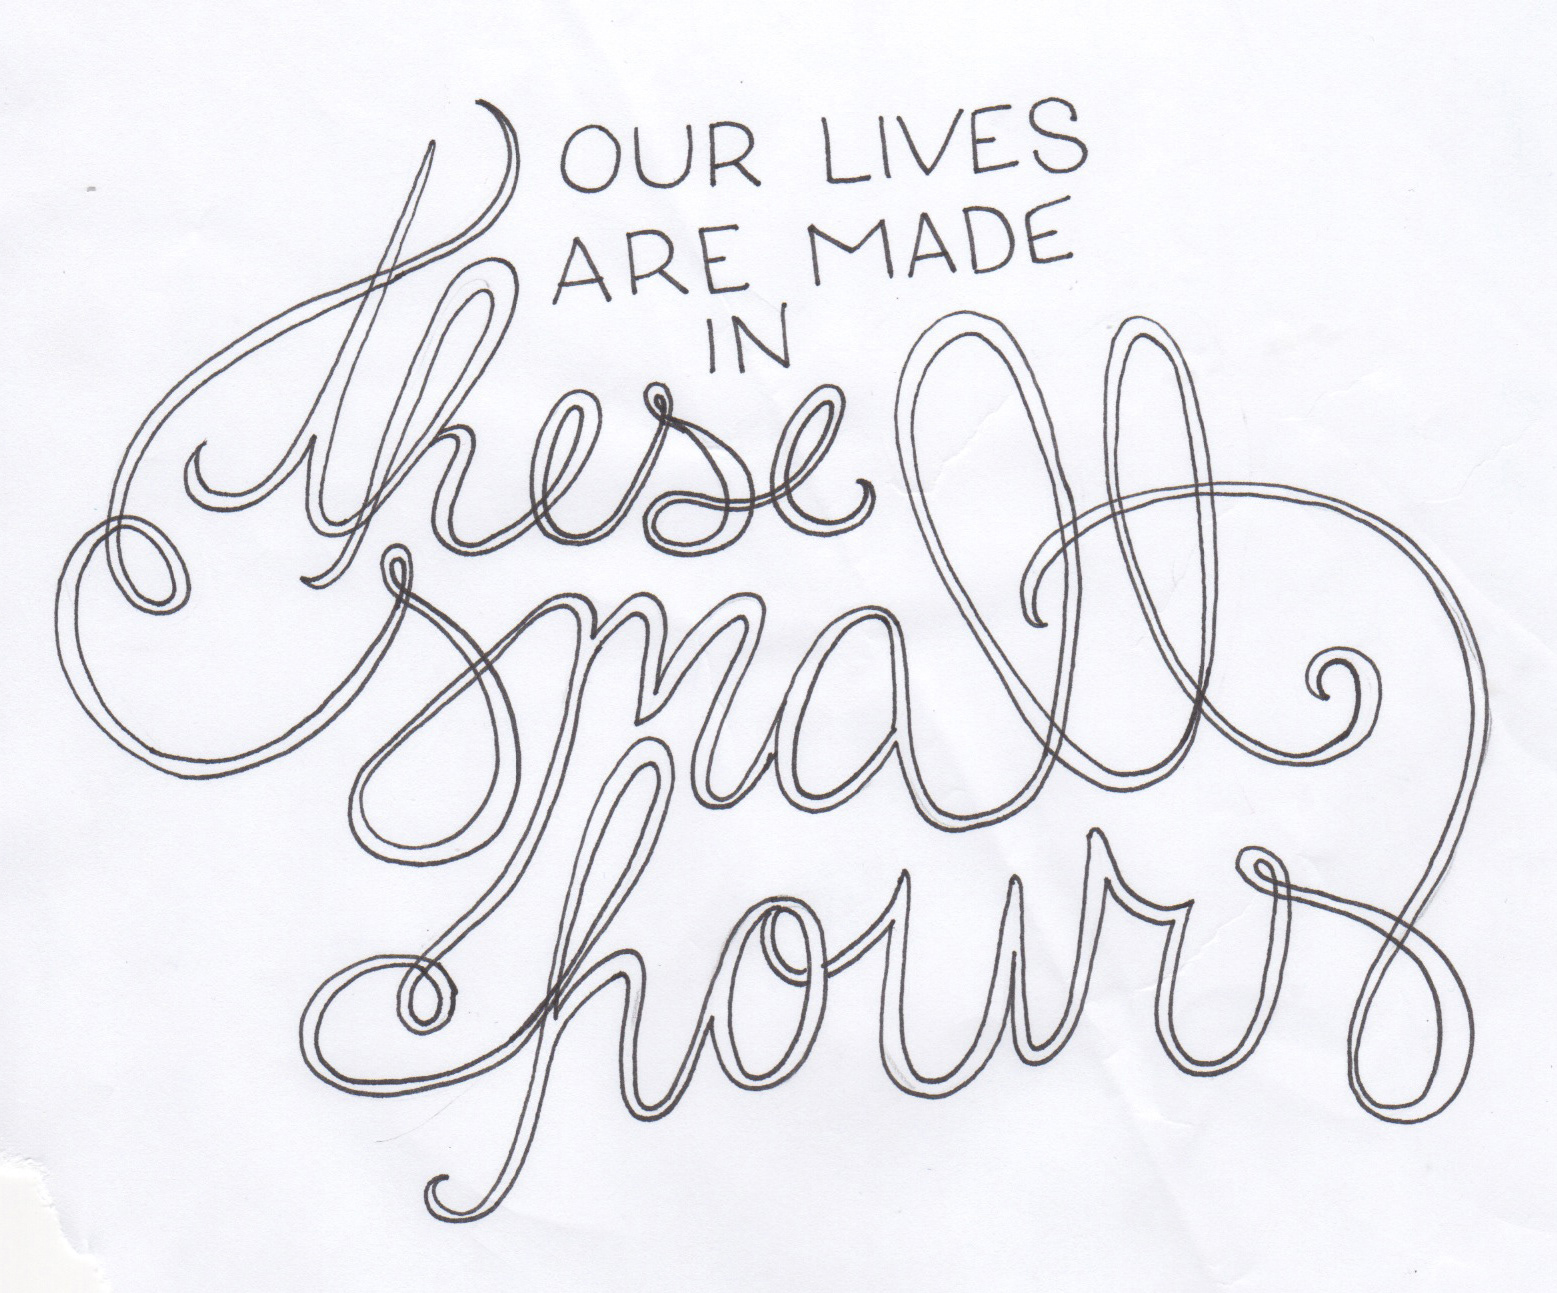 OUR LIVES
ARE MADE
IN
these
small
hours